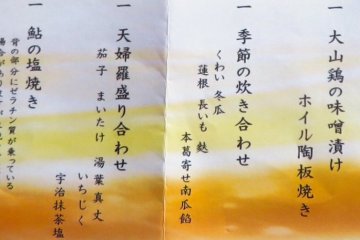 一 大山鶏の味噌漬け
ホイル陶板焼き
一 季節の炊き合わせ
くわい 冬瓜
蓮根 長いも 麩
本葛寄せ南瓜餡
一 天婦羅盛り合わせ
茄子 まいたけ 湯葉真丈
いちじく
宇治抹茶塩
一 鮎の塩焼き
背の部分にゼラチン質が乗っている